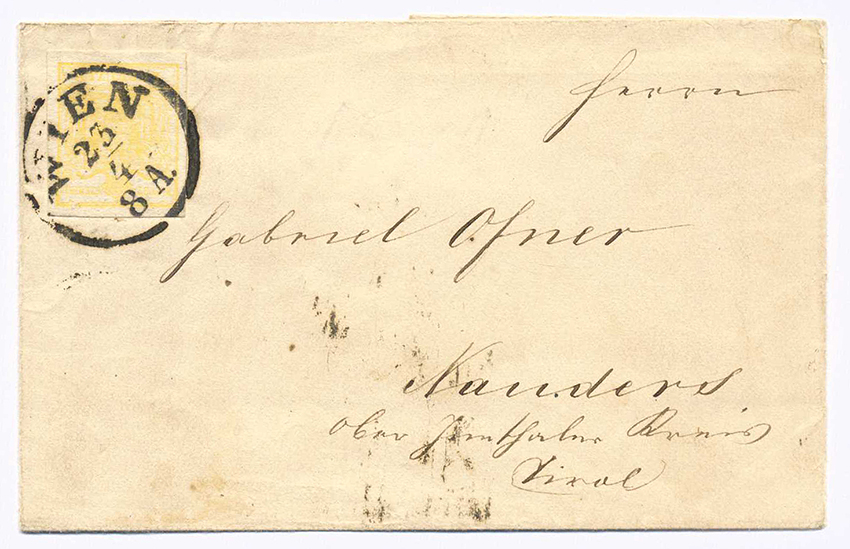 WIEN
23/4
8 A.
Herrn
Gabriel Ofner
Nauders
Ober Innthaler Kreis
Tirol